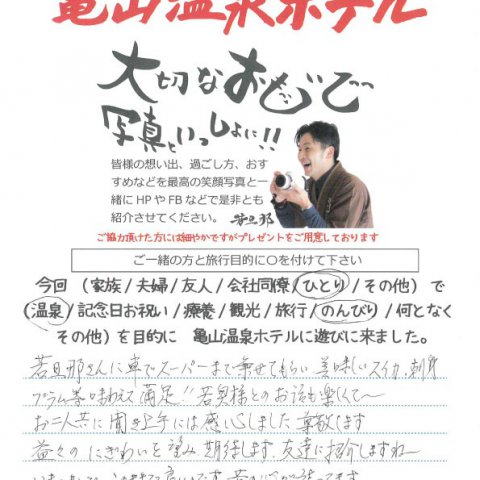 亀山温泉ホテル
大切なおもいで
写真といっしょに!!
皆様の想い出、過ごし方、おす
すめなどを最高の笑顔写真と一
緒にHPやFBなどで是非とも
紹介させてください。 若旦那
ご協力頂けた方には細やかですがプレゼントをご用意しております
ご一緒の方と旅行目的に〇を付けて下さい
今回(家族/夫婦/友人/会社同僚/ひとり/その他)で
(温泉/記念日お祝い/療養/観光/旅行/のんびり/何となく
その他)を目的に 亀山温泉ホテルに遊びに来ました。
若旦那さんに車でスーパーまで乗せてもらい 美味しいスイカ、刺身
プラム等味わえて満足!!若奥様とのお話も楽しくて〜
お二人共に聞き上手には感心しました 尊敬します
益々のにぎわいを望み 期待します。友達に紹介しますね〜